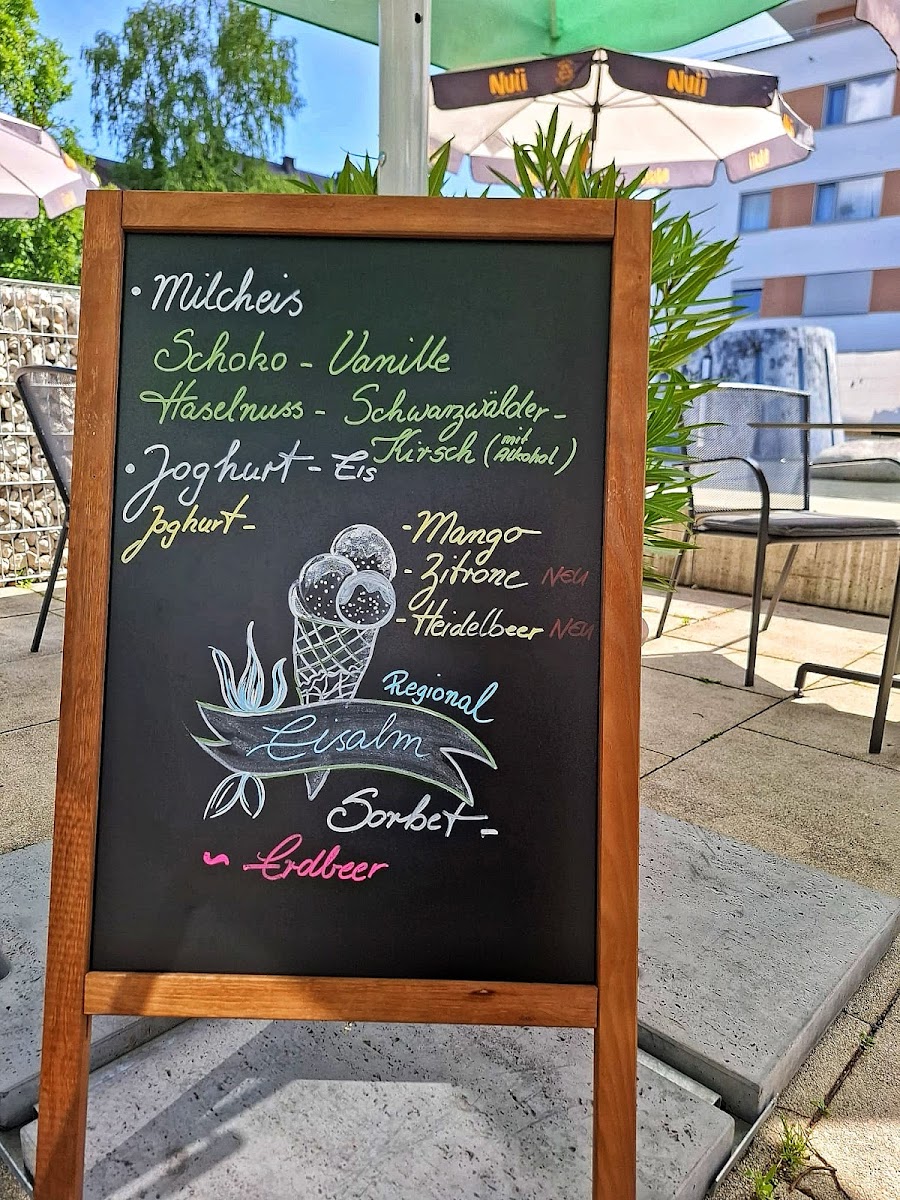 Nuii Nuii
• Milcheis
Schoko - Vanille
Haselnuss - Schwarzwälder-
Kirsch (mit Alkohol)
• Joghurt - Eis
Joghurt-
- Mango
- Zitrone NEU
- Heidelbeer NEU
Regional
Eisalm
Sorbet -
~ Erdbeer